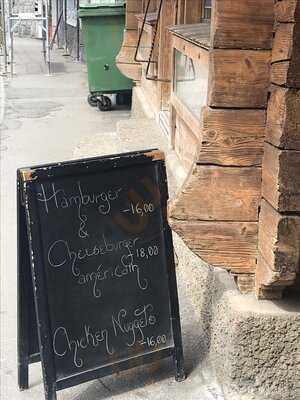 Hamburger
-16,00
&
Cheeseburger
-18,00
américain
Chicken Nuggets
-16,00